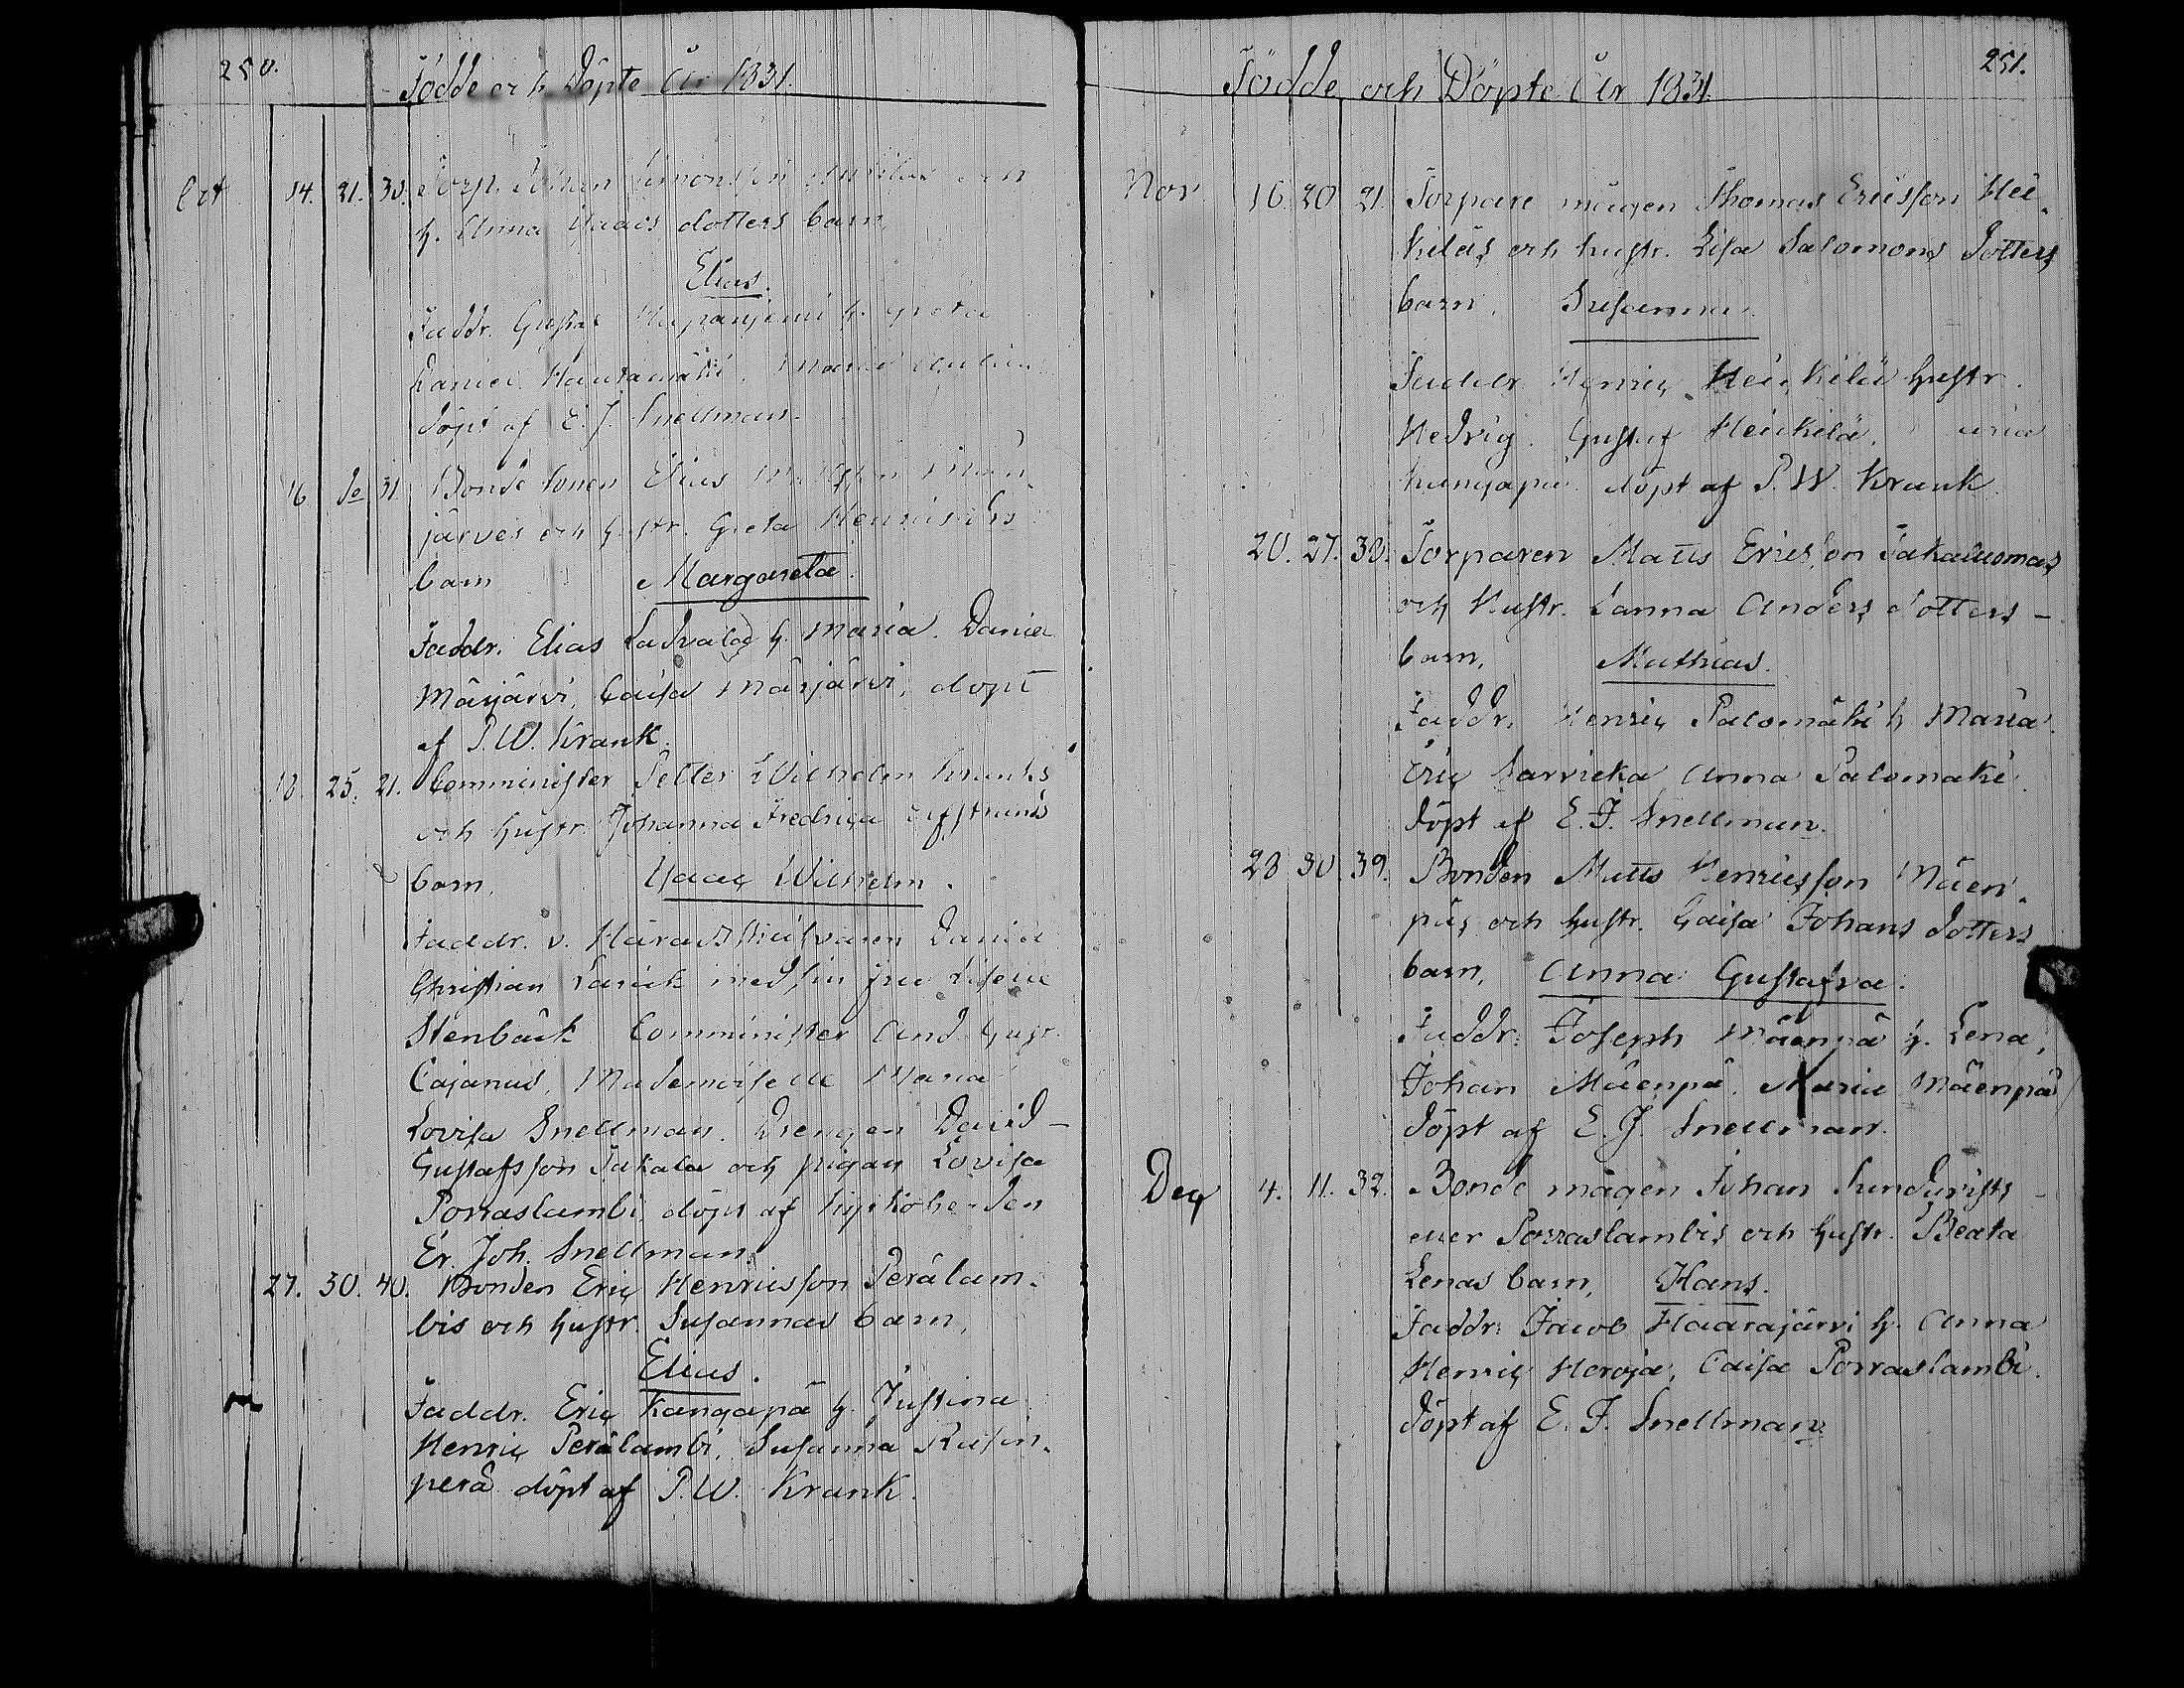 250.
Födde och Döpte År 1831.
Oct 14. 21. 30. Torp. Johan Simonsson
h. Anna Isaacs dotters barn
Elias.
Faddr. Gustaf h. Greta
Daniel Hautamäki. Maria
döpt af E. J. Snellman.
16 do 31. Bonde sonen Elias Mattsson Mär-
järves och hustr. Greta Henricsdrs
barn Margareta.
Faddr. Elias Ladvala h. Maria. Daniel
Märjärvi, Caisa Märjärvi, döpt
af P. W. Krank.
18. 25. 21. Comminister Petter Wilhelm Kranks
och hustr. Johanna Fredrica
barn, Isaac Wilhelm.
Faddr. v. Häradsskrifvaren Daniel
Christian med sin fru
Stenbäck Comminister And. Gust.
Cajanus, Mademoiselle Maria
Lovisa Snellman. Drengen David
Gustafsson Jakala och pigan Lovisa
Porraslambi, döpt af Kyrkoherden
Er. Joh. Snellman.
27. 30. 40. Bonden Eric Henricsson Perälam-
bis och hustr. Susannas barn,
Elias.
Faddr. Eric Kangapä h. Justina
Henric Perälambi, Susanna
perä döpt af P. W. Krank.
251.
Födde och Döpte År 1831.
Nov 16. 20 21. Torpare mågen Thomas Ericsson Hei-
kiläs och hustr. Lisa Salomons dotters
barn, Susanna.
Faddr Henric Heikilä hustr.
Hedvig. Gustaf Heikilä,
döpt af P. W. Krank.
20. 27. 38. Torparen Matts Ericsson Jakaluomas
och Hustr. Sanna Anders dotters
barn, Mathias.
Faddr. Henric Palomäki h Maria.
Eric Sarvicka Anna Palomäki
döpt af E. J. Snellman.
28 30. 39. Bonden Matts Henricsson Mäen-
päs och hustr. Caisa Johans dotters
barn, Anna Gustafva.
Faddr: Joseph Mäenpä h. Lena,
Johan Mäenpä. Maria Mäenpä
döpt af E. J. Snellman.
Dec 4. 11. 32. Bonde mågen Johan Sundqvists
eller Porraslambis och hustr. Beata
Lenas barn, Hans.
Faddr: Jacob Haarajärvi h. Anna
Henric Heroja, Caisa Porraslambi.
döpt af E. J. Snellman